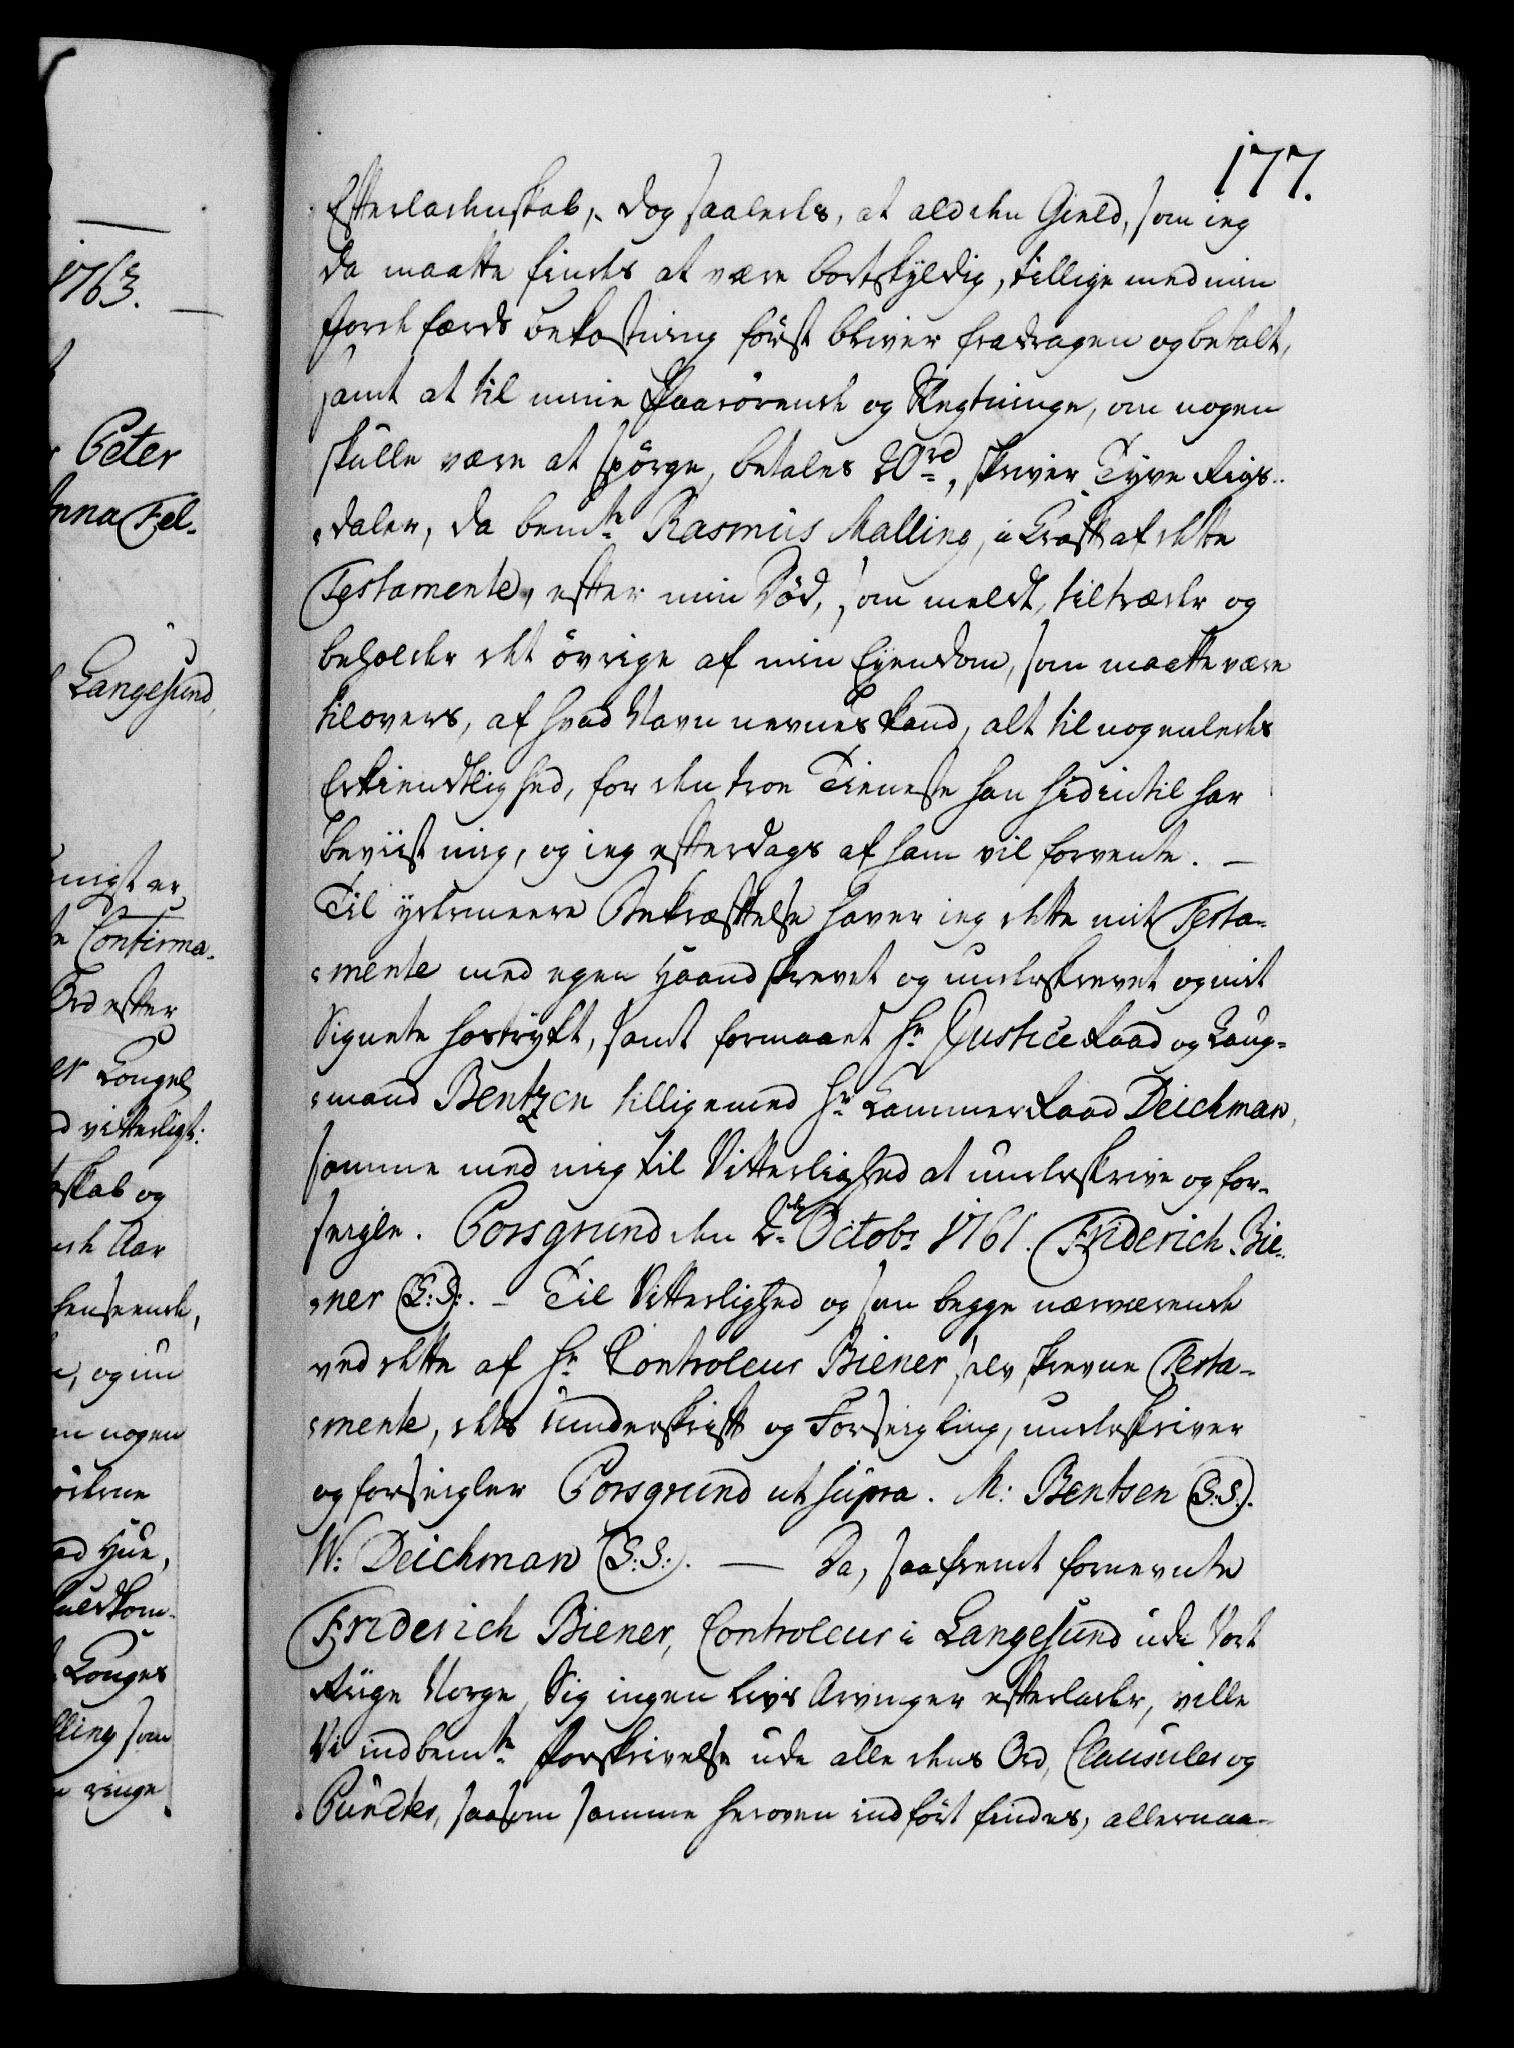 177.
Efterladenskab, dog saaledes, at ald den Gield, som ieg
da maatte findes at være bortskyldig, tillige med min
Jorde færds bekostning först bliver fradragen og betalt,
samt at til mine Paarörende og Slegtninge, om nogen
skulle være at spörge, betales 20rd, skriver Tyve Rigs-
daler, da bemte Rasmus Malling, i Kraft af dette
Testamente, efter min Död, som meldt, tiltræder og
beholder det övrige af min Eyendom, som maatte være
tilovers, af hvad Navn nevnes kand, alt til nogenledes
Erkiendtlighed, for den troe Tieneste han hidindtil har
beviist mig, og ieg efterdags af ham vil forvente. —
Til ydermeere Bekræftelse haver ieg dette mit Testa-
mente med egen Haand skrevet og underskrevet og mit
Signete hostrykt, samt formaaet Hr Justice Raad og Laug-
mand Bentzen tilligemed Hr Kammer Raad Deichman,
samme med mig til Vitterlighed at underskrive og for-
seigle. Porsgrund den 2de Octobr 1761. Friderich Bie-
ner (L:S:). – Til Vitterlighed og som begge nærværende
ved dette af Hr Controleur Biener selv skrevne Testa-
mente, dets Underskrift og Forseigling, underskriver
og forseigler Porsgrund ut supra. M: Bentsen (L:S:).
W: Deichman (L:S:). — Da, saafremt fornevnte
Friderich Biener, Controleur i Langesund udi Vort
Riige Norge, Sig ingen Livs Arvinger efterlader, ville
Vi indbemte Forskrivelse udi alle dens Ord, Clausuler og
Puncter, saasom samme heroven indfört findes, allernaa-
1763.
Peter
Anna Fel-
Langesund,
Confirma-
Ord efter
Kongel
vitterligt:
skab og
Aar
henseende,
og nogen
Hue,
Kongel
lling som
ringe